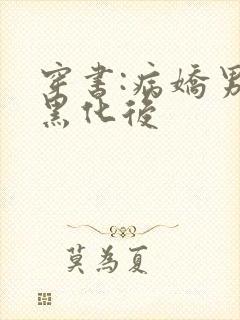 穿書:病嬌男
黑化後
莫為夏